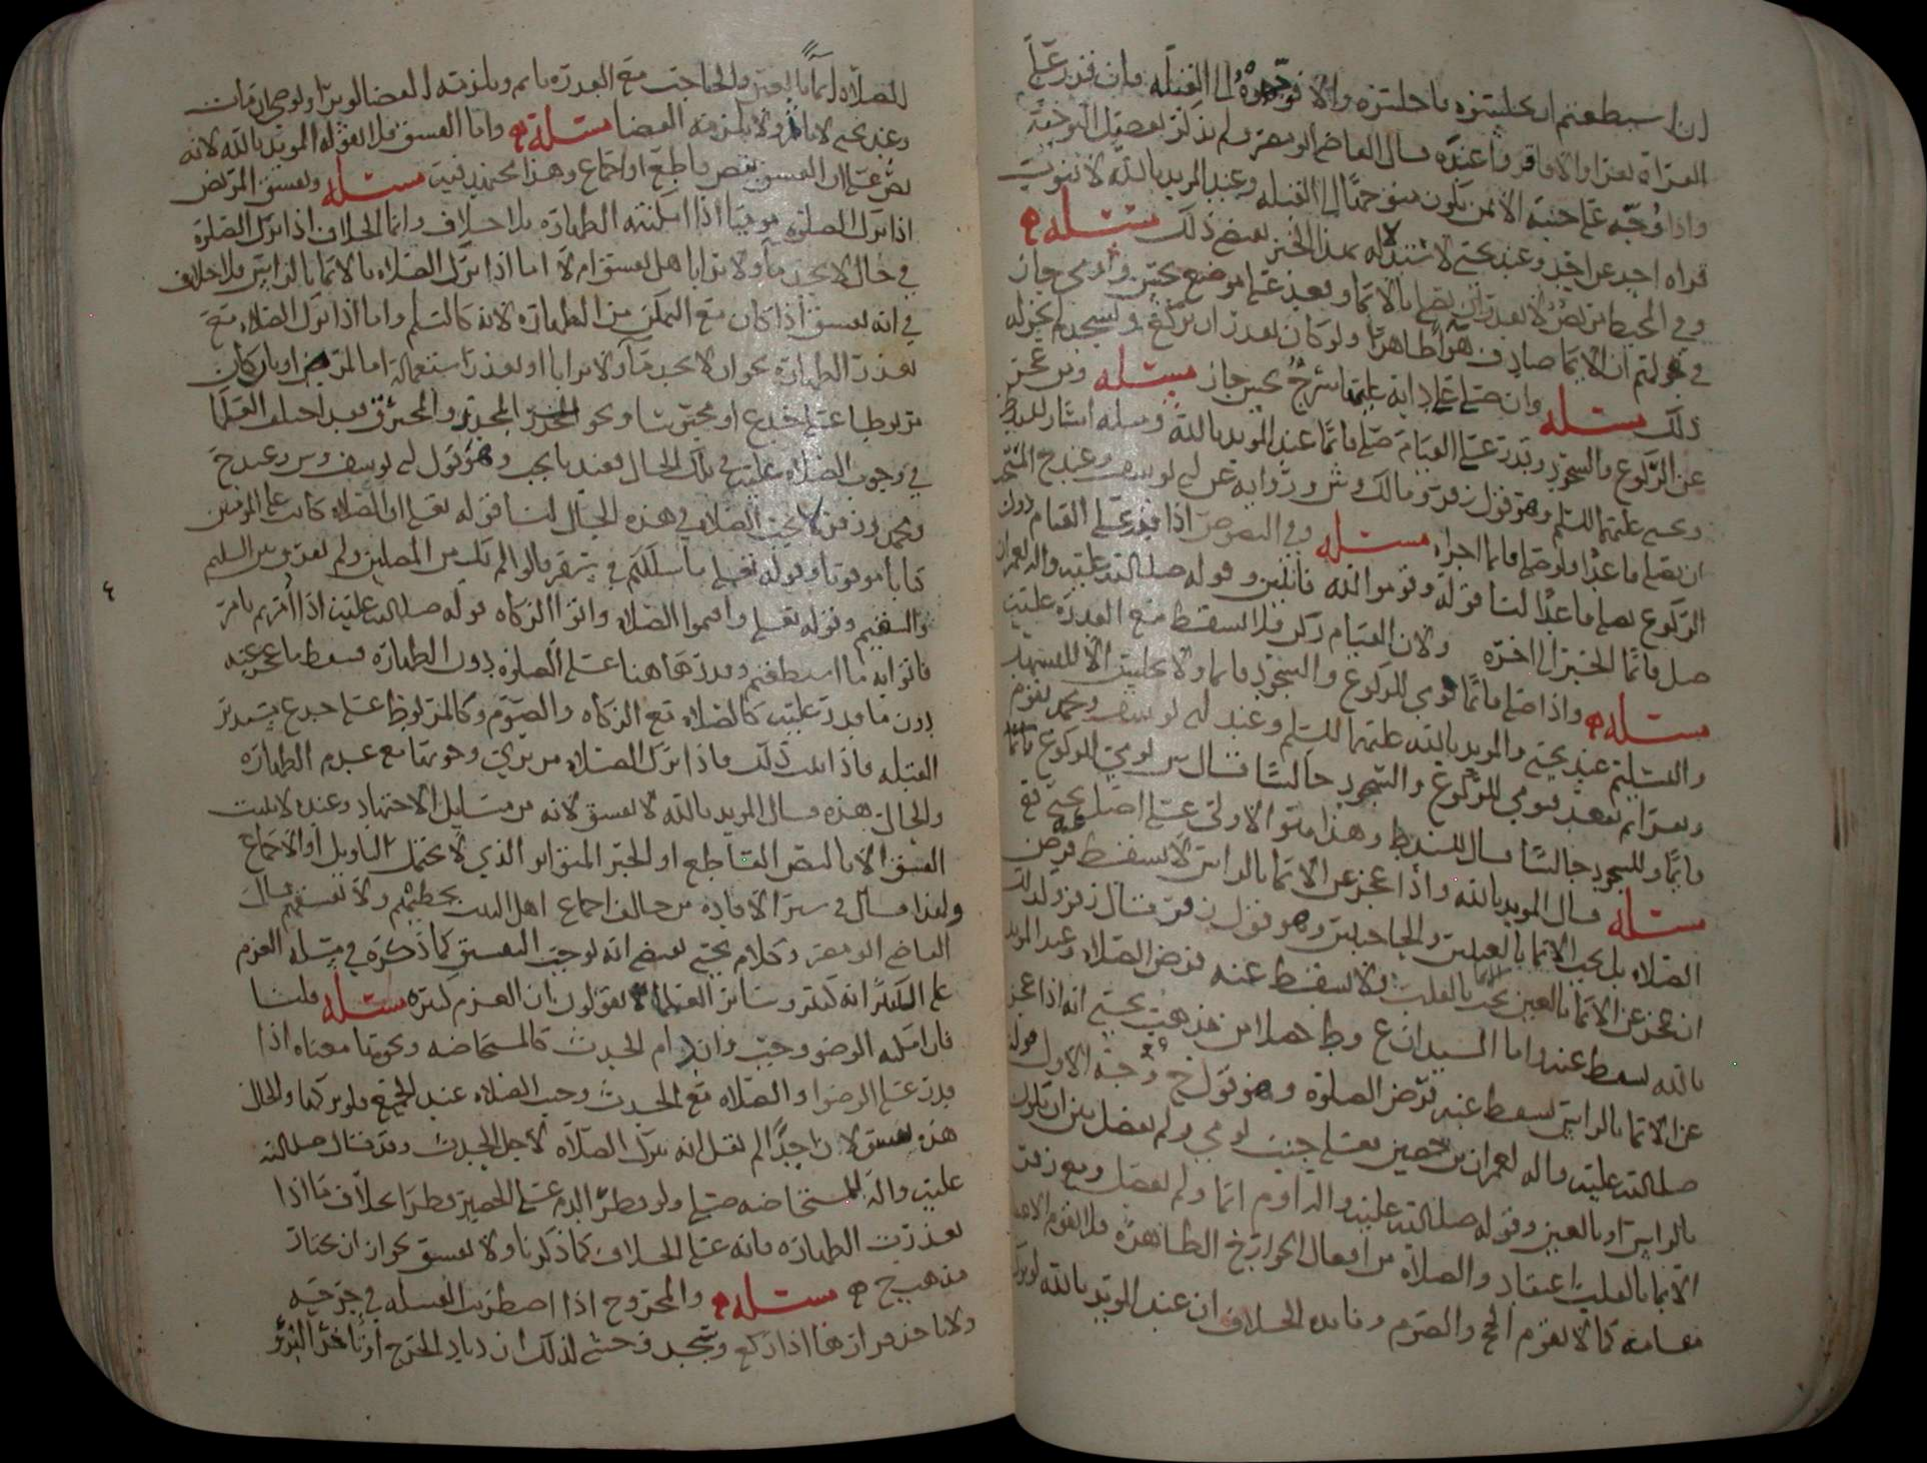 ان استطعتم ان تجلسوه فاجلسوه والا فوجهوه الى القبلة فان قدر على
القراة قرا والا فما قر وا عنده قال القاضي ابو مضر ولم يذكر تفصيل التوجيه
واذا وجه على جنبه الايمن يكون متوجها الى القبلة وعند المويد بالله لا تنوب
قراه احد عن احد وعند يحيى لاستدلاله بهذا الخبر بعض ذلك مسئله
وفي المحيط مريض لا يقدر ان يصلي بالايما وبعد على موضع نجس واومى جاز
في قولهم ان الايما صادف هوا طاهرا ولو كان يقدر ان يركع ويسجد لم يجز له
ذلك مسئله وان صلى على دابة عليها سرج نجس جاز مسئله ومن عجز
عن الركوع والسجود وقدر على القيام صلى قائما عند المويد بالله ومثله اشار
ويحيى عليهما السلم وهو قول زفر ومالك وش ورواية عن ابي يوسف وعند ح
ان يصلي قاعدا فلو صلى قائما اجزاه مسئله وفي النصوص اذا قدر على القيام دون
الركوع يصلي قاعدا لنا قوله وقوموا لله قانتين وقوله صلى الله عليه واله لعمران
صل قائما الخبر الى اخره ولان القيام ركن فلا يسقط مع القدرة عليه
مسئله واذا صلى قائما اومى للركوع والسجود قائما ولا يجلس الا للتشهد
والتسليم عند يحيى والمويد بالله عليهما السلم وعند ابي يوسف ومحمد يقوم
ويقرا ثم يقعد فيومي للركوع والسجود جالسا قال ش يومي للركوع قائما
قائما وللسجود جالسا قال وهذا هو الاولى على اصل يحيى ع
مسئله قال المويد بالله واذا عجز عن الايما بالراس لا يسقط عنه فرض
الصلاه بل يجب الايما بالعينين والحاجبين وهو قول زفر قال زفر وكذلك
ان عجز عن الايما بالعين يجب الايما بالقلب ولا يسقط عنه فرض الصلاه وعند المويد
بالله يسقط عنه واما السيدان ع وط حصلا من مذهب يحيى انه اذا عجز
عن الايما بالراس يسقط عنه فرض الصلوة وهو قول ح وجه الاول قوله
صلى الله عليه واله لعمران بن حصين فعلى جنب يومي ولم يفصل بين ان يكون
بالراس او بالعين وقوله صلى الله عليه واله اوم ايما ولم يفصل ومع زفر
الايما بالقلب اعتقاد والصلاة من افعال الجوارح الظاهره فلا يقوم
مقامه كما لا يقوم الحج والصوم وفايده الخلاف ان عند المويد بالله لو ترك
الصلاه ايما بالعين والحاجب مع القدره ياثم ويلزمه القضا لو برا
وعند يحيى لا ياثم ولا يلزمه القضا مسئله واما الفسق فلا يقوله المويد بالله لانه
نص على ان الفسق بنص قاطع او اجماع وهذا مجتهد فيه مسئله ويفسق المريض
اذا ترك الصلوة موميا اذا امكنته الطهاره بلا خلاف وانما الخلاف اذا ترك الصلوة
في حال لا يجد ما ولا ترابا هل يفسق ام لا اما اذا ترك الصلاه بالايما بالراس فلا خلاف
في انه يفسق اذا كان مع التمكن من الطهاره لانه كالسليم واما اذا ترك الصلاه مع
تعذر الطهارة نحو ان لا يجد ما ولا ترابا او تعذر استعماله اما لمرض او بان كان
مربوطا على جذع او محبوسا ونحو المجدر والمحترق فقد اختلف العلما
في وجوب الصلاه عليه في تلك الحال فعندنا يجب وهو قول ابي يوسف وش وعند ح
ومحمد وزفر لا يجب الصلاه في هذه الحال لنا قوله تعلى ان الصلاه كانت على المومنين
كتابا موقوتا وقوله تعلى ما سلككم في سقر قالوا لم نك من المصلين ولم يفرق بين السليم
والسقيم وقوله تعلى واقيموا الصلاه واتوا الزكاه قوله صلى الله عليه اذا امرتم بامر
فاتوا به ما استطعتم وقدر هاهنا على الصلوه دون الطهاره فسقط ما عجز عنه
دون ما قدر عليه كالصلاه مع الزكاه والصوم وكالمربوط على جذع مستدبر
القبله فاذا ثبت ذلك فاذا ترك الصلاه من يرى وجوبها مع عدم الطهاره
والحال هذه قال المويد بالله لا يفسق لانه من مسايل الاجتهاد وعنده لا يثبت
الفسق الا بالنص القاطع او الخبر المتواتر الذي لا يحتمل التاويل او الاجماع
ولهذا قال في سير الافاده من خالف اجماع اهل البيت يخطيهم ولا يفسقهم قال
القاضي ابو مضر وكلام يحيى يقتضي انه يوجب التفسيق كما ذكره في مسئله العزم
على الكبير انه كبير وسائر العلما لا يقولون ان العزم كبيره مسئله قلنا
فان امكنه الوضو وجب وان دام الحدث كالمستحاضه ونحوها معناه اذا
قدر على الوضو او الصلاه مع الحدث وجب الصلاه عند الجميع فلو تركها والحال
هذه يفسق لان احدا لم يقل انه يترك الصلاه لاجل الحدث وقد قال صلى الله
عليه واله للمستحاضه صلي ولو قطر الدم على الحصير قطرا بخلاف ما اذا
تعذرت الطهاره فانه على الخلاف كما ذكرنا ولا يفسق نحو ان يختار
مذهب ح مسئله والمجروح اذا اضطربت الفتيله في جرحه
ولا ياخذ قرارها اذا ركع وسجد فخشي لذلك ازدياد الجرح او تاخر البرؤ
٤